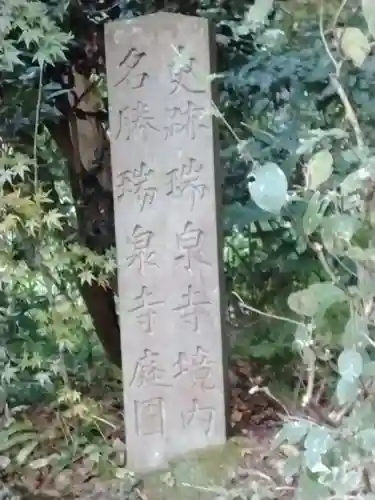 史跡瑞泉寺境内
名勝瑞泉寺庭園